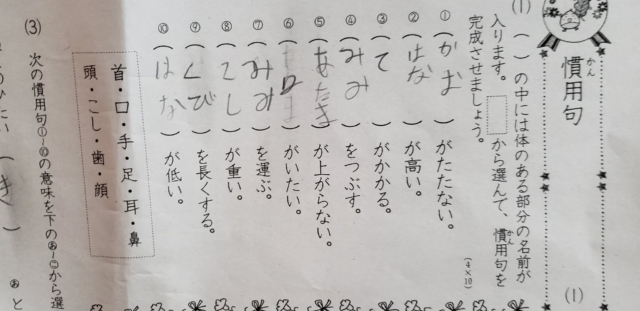 慣用句 (1)
(1) ( )の中には体のある部分の名前が
入ります。 から選んで、慣用句を
完成させましょう。 (4×10)
① (かお)がたたない。
② (はな)が高い。
③ (て)がかかる。
④ (みみ)をつぶす。
⑤ (あたま)が上がらない。
⑥ ( )がいたい。
⑦ (みみ)を運ぶ。
⑧ (こし)が重い。
⑨ (くび)を長くする。
⑩ (はな)が低い。
首・口・手・足・耳・鼻
頭・こし・歯・顔
(3) 次の慣用句①-⑩の意味を下のあ-こから選